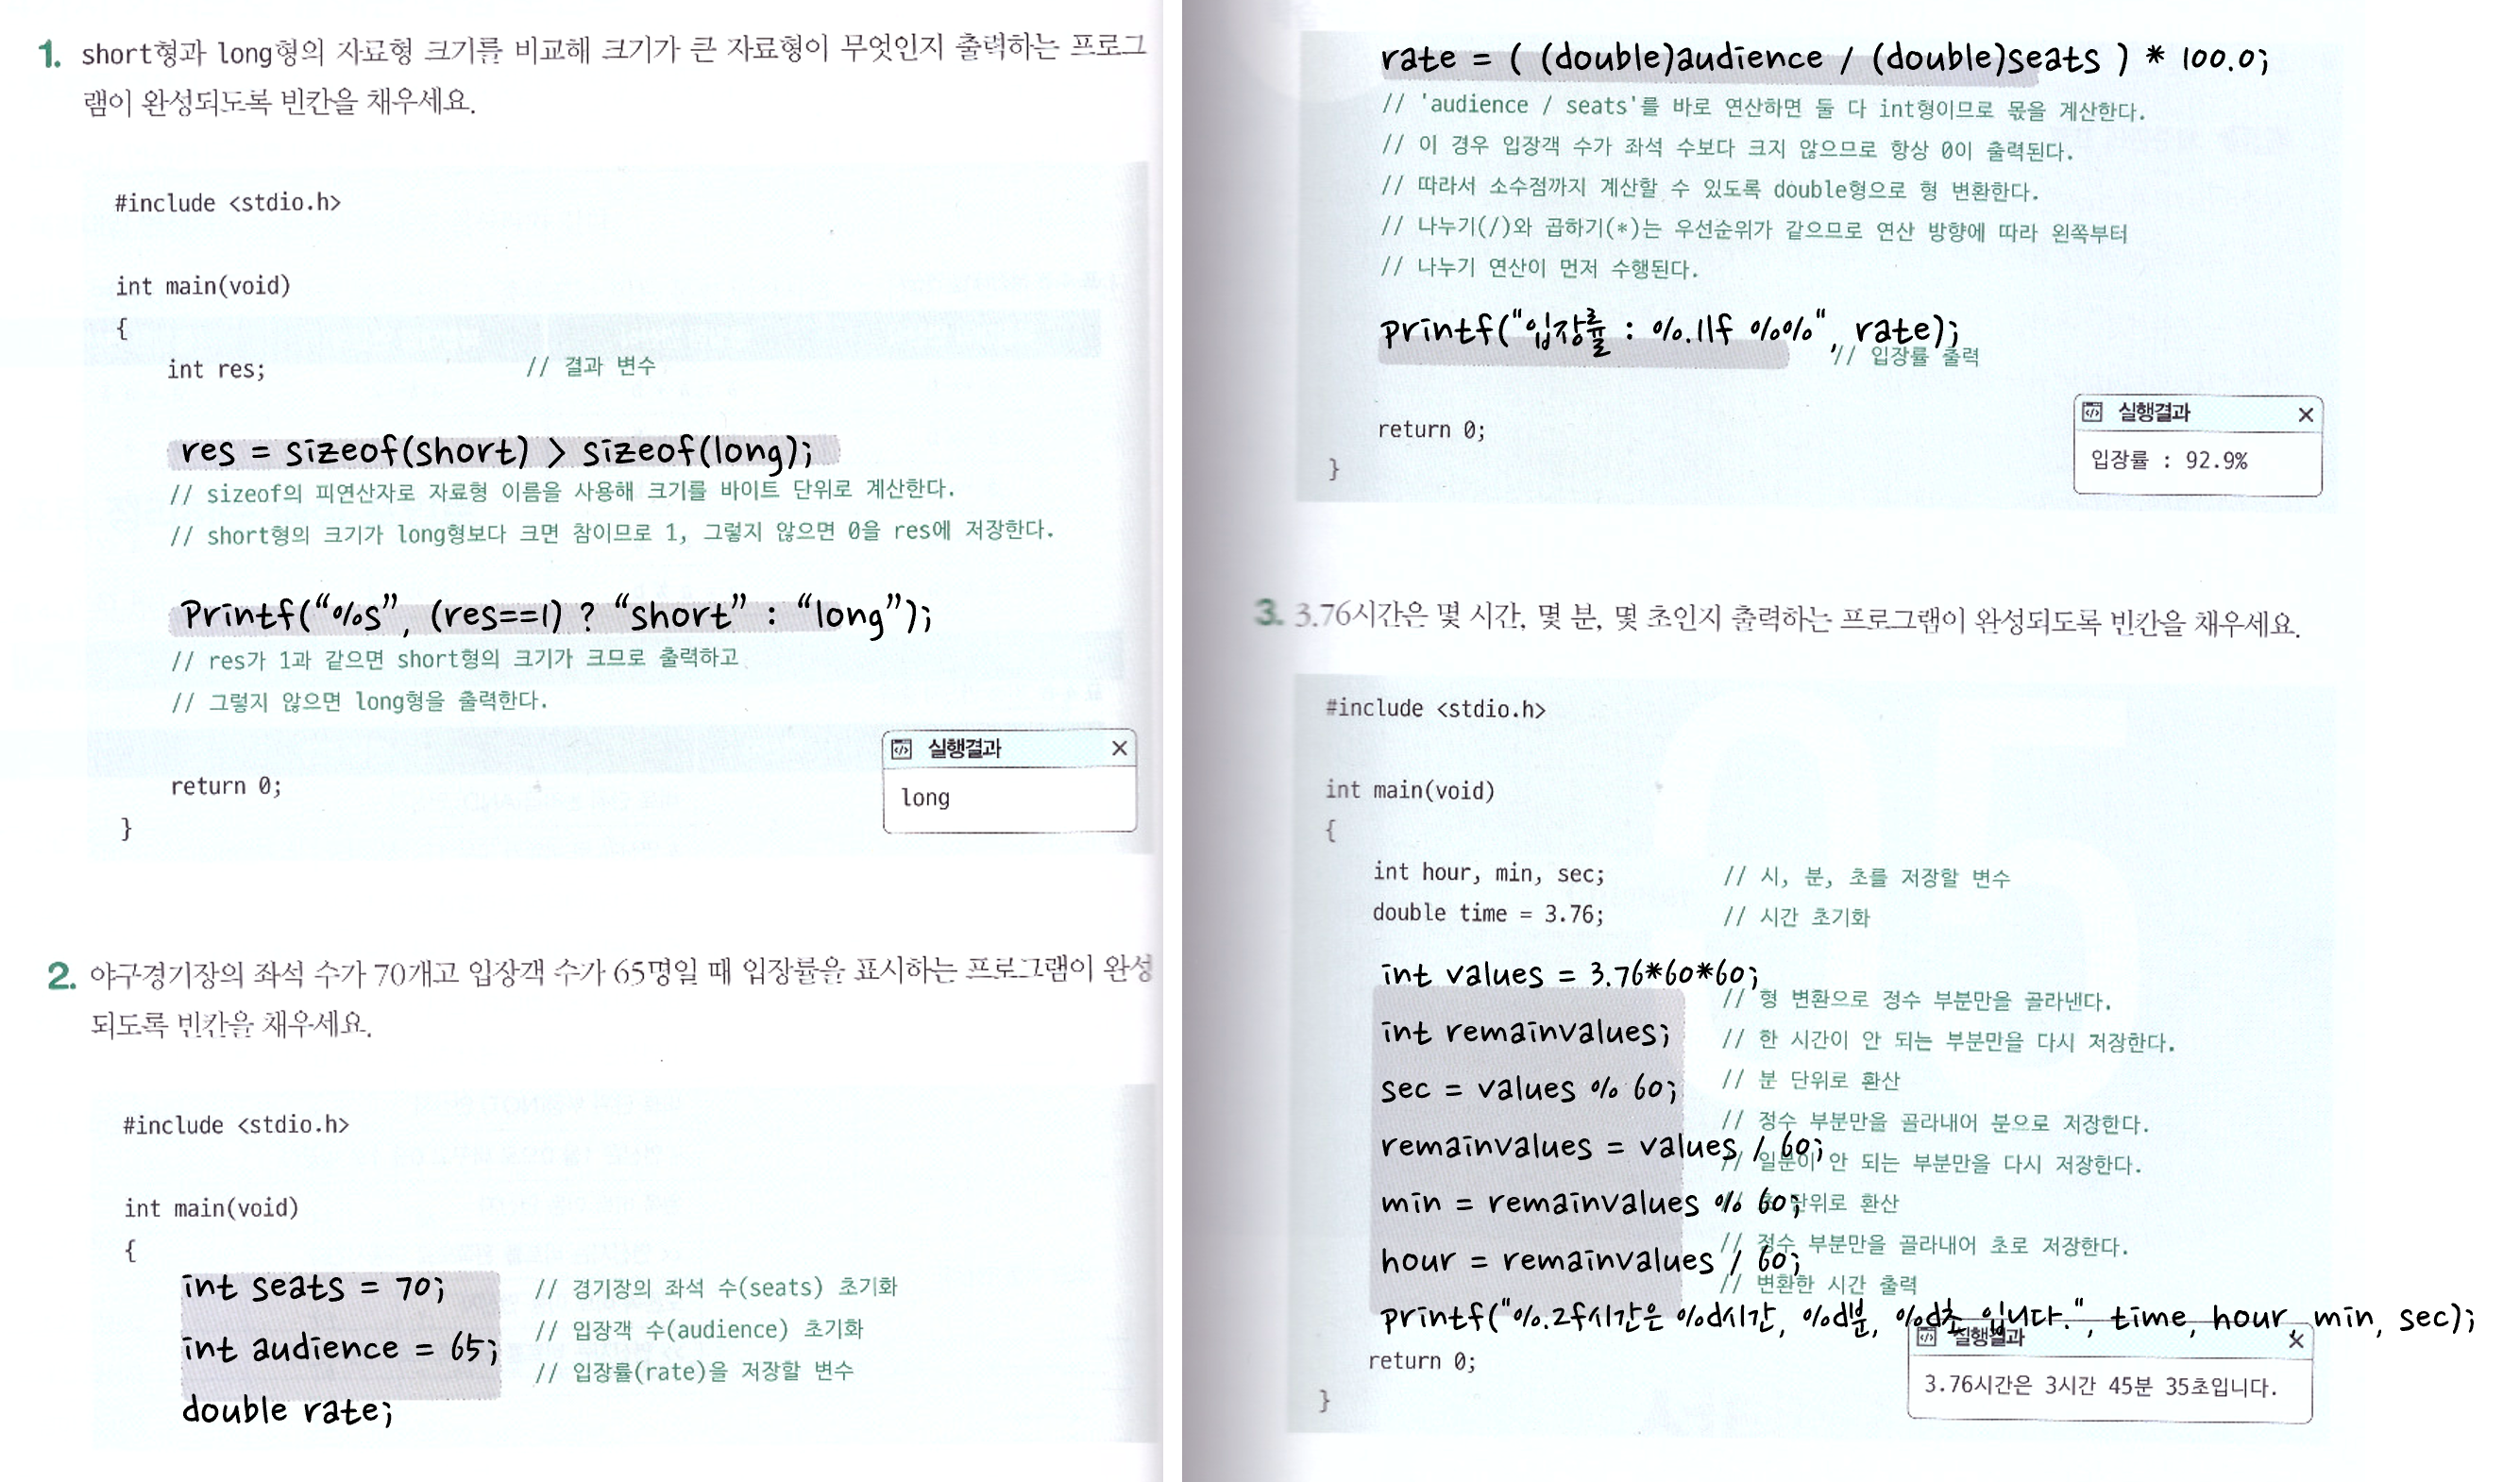 1. short형과 long형의 자료형 크기를 비교해 크기가 큰 자료형이 무엇인지 출력하는 프로그
램이 완성되도록 빈칸을 채우세요.
#include <stdio.h>
int main(void)
{
int res; // 결과 변수
res = sizeof(short) > sizeof(long);
// sizeof의 피연산자로 자료형 이름을 사용해 크기를 바이트 단위로 계산한다.
// short형의 크기가 long형보다 크면 참이므로 1, 그렇지 않으면 0을 res에 저장한다.
Printf(“%s”, (res==1) ? “short” : “long”);
// res가 1과 같으면 short형의 크기가 크므로 출력하고
// 그렇지 않으면 long형을 출력한다.
return 0;
}
실행결과
long
2. 야구경기장의 좌석 수가 70개고 입장객 수가 65명일 때 입장률을 표시하는 프로그램이 완성
되도록 빈칸을 채우세요.
#include <stdio.h>
int main(void)
{
int seats = 70; // 경기장의 좌석 수(seats) 초기화
int audience = 65; // 입장객 수(audience) 초기화
double rate; // 입장률(rate)을 저장할 변수
rate = ( (double)audience / (double)seats ) * 100.0;
// 'audience / seats'를 바로 연산하면 둘 다 int형이므로 몫을 계산한다.
// 이 경우 입장객 수가 좌석 수보다 크지 않으므로 항상 0이 출력된다.
// 따라서 소수점까지 계산할 수 있도록 double형으로 형 변환한다.
// 나누기(/)와 곱하기(*)는 우선순위가 같으므로 연산 방향에 따라 왼쪽부터
// 나누기 연산이 먼저 수행된다.
printf("입장률 : %.1lf %%", rate);
// 입장률 출력
return 0;
}
실행결과
입장률 : 92.9%
3. 3.76시간은 몇 시간, 몇 분, 몇 초인지 출력하는 프로그램이 완성되도록 빈칸을 채우세요.
#include <stdio.h>
int main(void)
{
int hour, min, sec; // 시, 분, 초를 저장할 변수
double time = 3.76; // 시간 초기화
int values = 3.76*60*60;
// 형 변환으로 정수 부분만을 골라낸다.
int remainvalues; // 한 시간이 안 되는 부분만을 다시 저장한다.
sec = values % 60; // 분 단위로 환산
// 정수 부분만을 골라내어 분으로 저장한다.
remainvalues = values / 60;
// 일분이 안 되는 부분만을 다시 저장한다.
min = remainvalues % 60; // 초 단위로 환산
// 정수 부분만을 골라내어 초로 저장한다.
hour = remainvalues / 60;
// 변환한 시간 출력
printf("%.2f시간은 %d시간, %d분, %d초 입니다.", time, hour, min, sec);
return 0;
}
실행결과
3.76시간은 3시간 45분 35초입니다.